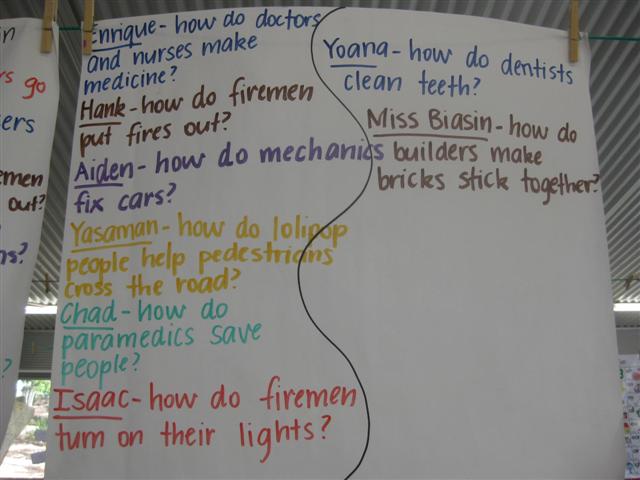 in
rs go
ers
emen
out?
s?
?
Enrique-how do doctors
and nurses make
medicine?
Hank-how do firemen
put fires out?
Aiden-how do mechanics
fix cars?
Yasaman-how do lolipop
people help pedestrians
cross the road?
Chad-how do
paramedics save
people?
Isaac-how do firemen
turn on their lights?
Yoana-how do dentists
clean teeth?
Miss Biasin-how do
builders make
bricks stick together?